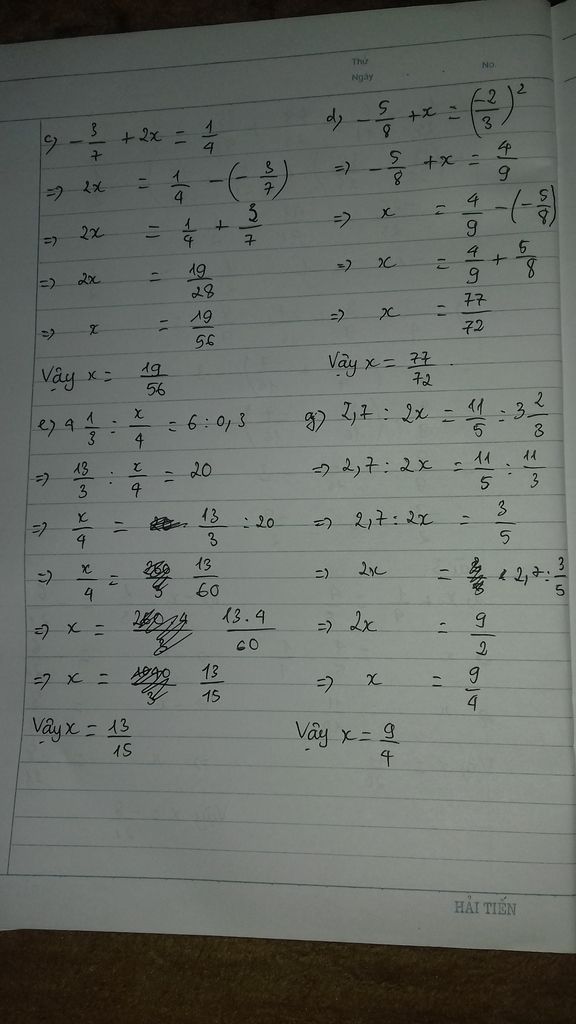 Thứ
Ngày
No.
c) -3/7 + 2x = 1/4
=> 2x = 1/4 - (-3/7)
=> 2x = 1/4 + 3/7
=> 2x = 19/28
=> x = 19/56
Vậy x = 19/56
d) -5/8 + x = (-2/3)²
=> -5/8 + x = 4/9
=> x = 4/9 - (-5/8)
=> x = 4/9 + 5/8
=> x = 77/72
Vậy x = 77/72.
e) 4 1/3 : x/4 = 6 : 0,3
=> 13/3 : x/4 = 20
=> x/4 = 13/3 : 20
=> x/4 = 13/60
=> x = 13.4/60
=> x = 13/15
Vậy x = 13/15
g) 2,7 : 2x = 11/5 : 3 2/3
=> 2,7 : 2x = 11/5 : 11/3
=> 2,7 : 2x = 3/5
=> 2x = 2,7 : 3/5
=> 2x = 9/2
=> x = 9/4
Vậy x = 9/4
HẢI TIẾN